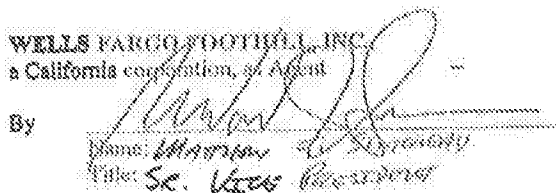 WELLS FARGO FOOTHILL, INC.
a California corporation, as Agent
By
Name:
Title: Sr. Vice President